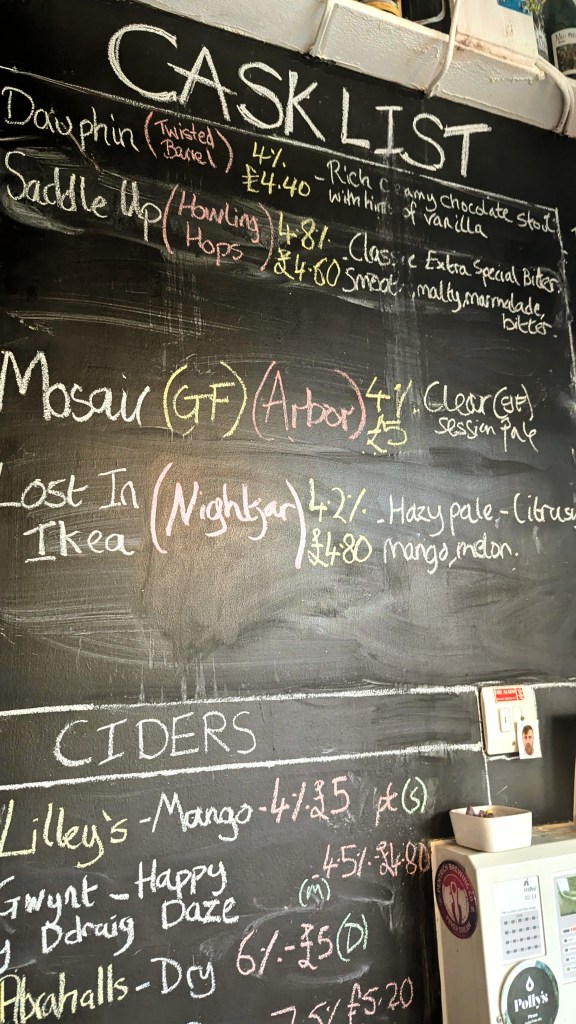 CASK LIST
Dauphin (Twisted Barrel) 4% £4.40 - Rich creamy chocolate stout
with hints of vanilla
Saddle Up (Howling Hops) 4.8% £4.60 - Classic Extra Special Bitter.
Smooth, malty, marmalade,
bitter.
Mosaic (GF) (Arbor) 4% £5 Clear (GF)
session pale
Lost In
Ikea (Nightjar) 4.2% £4.80 - Hazy pale - Citrusy
mango, melon.
CIDERS
Lilley's - Mango - 4% £5 pt (S)
Gwynt - Happy 4.5% - £4.80
y Ddraig Daze (M)
Abrahalls - Dry 6% - £5 (D)
7.5% £5.20
Polly's